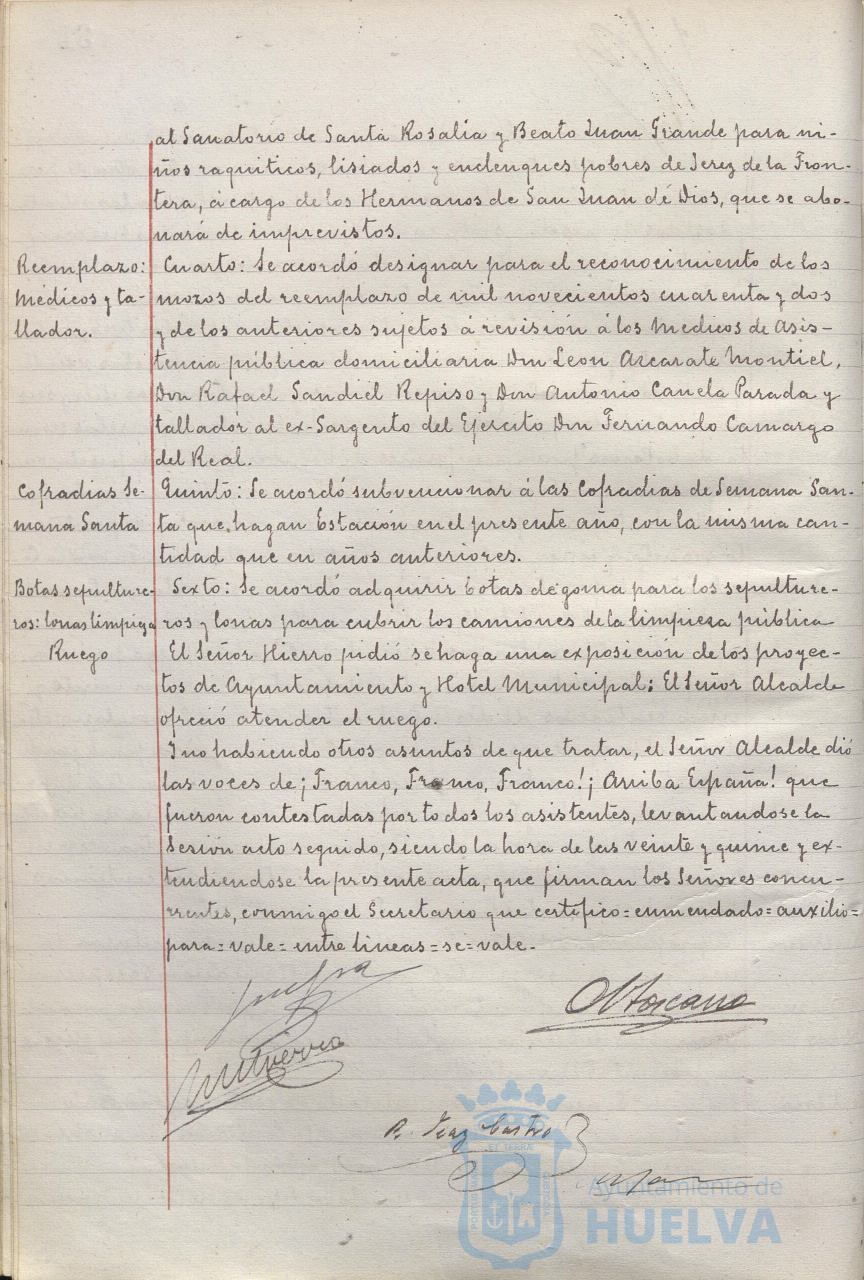 al Sanatorio de Santa Rosalía y Beato Juan Grande para ni-
ños raquiticos, lisiados y enclenques pobres de Jerez de la Fron-
tera, á cargo de los Hermanos de San Juan de Dios, que se abo-
nará de imprevistos.
Reemplazo:
Médicos y ta-
llador.
Cuarto: Se acordó designar para el reconocimiento de los
mozos del reemplazo de mil novecientos cuarenta y dos
y de los anteriores sujetos á revisión á los Medicos de Asis-
tencia pública domiciliaria Don Leon Azcarate Montiel,
Don Rafael Sandiel Repiso y Don Antonio Canela Parada y
tallador al ex-Sargento del Ejército Don Fernando Camargo
del Real.
Cofradias Se-
mana Santa
Quinto: Se acordó subvencionar á las Cofradias de Semana San-
ta que hagan Estación en el presente año, con la misma can-
tidad que en años anteriores.
Botas sepulture-
ros: lonas limpieza
Sexto: Se acordó adquirir botas de goma para los sepulture-
ros y lonas para cubrir los camiones de la limpieza pública
Ruego
El Señor Hierro pidió se haga una exposición de los proyec-
tos de Ayuntamiento y Hotel Municipal: El Señor Alcalde
ofreció atender el ruego.
I no habiendo otros asuntos de que tratar, el Señor Alcalde dió
las voces de ¡Franco, Franco, Franco! ¡Arriba España! que
fueron contestadas por todos los asistentes, levantandose la
Sesión acto seguido, siendo la hora de las veinte y quince y ex-
tendiendose la presente acta, que firman los Señores concu-
rrentes, conmigo el Secretario que certifico=enmendado=auxilio=
para=vale=entre lineas=se=vale.
R. Diaz Castro
Ayuntamiento de
HUELVA